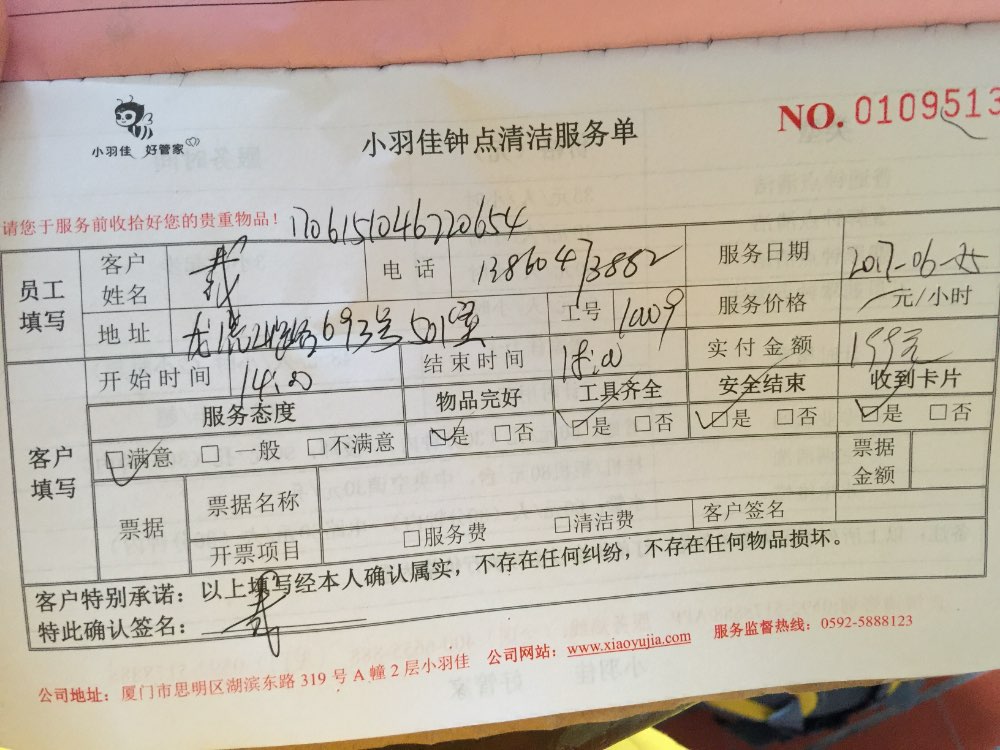 小羽佳 好管家
小羽佳钟点清洁服务单
NO. 0109513
请您于服务前收拾好您的贵重物品！ 1706151046720654
员工填写 客户姓名 电话 13860473882 服务日期 2017-06-25
地址 693号501室 工号 10009 服务价格 元/小时
开始时间 14:00 结束时间 18:00 实付金额 199元
客户填写 服务态度 物品完好 工具齐全 安全结束 收到卡片
☑满意 □一般 □不满意 ☑是 □否 ☑是 □否 ☑是 □否 ☑是 □否
票据 票据名称 票据金额
开票项目 □服务费 □清洁费 客户签名
客户特别承诺：以上填写经本人确认属实，不存在任何纠纷，不存在任何物品损坏。
特此确认签名：
公司地址：厦门市思明区湖滨东路 319 号 A 幢 2 层小羽佳 公司网站：www.xiaoyujia.com 服务监督热线：0592-5888123